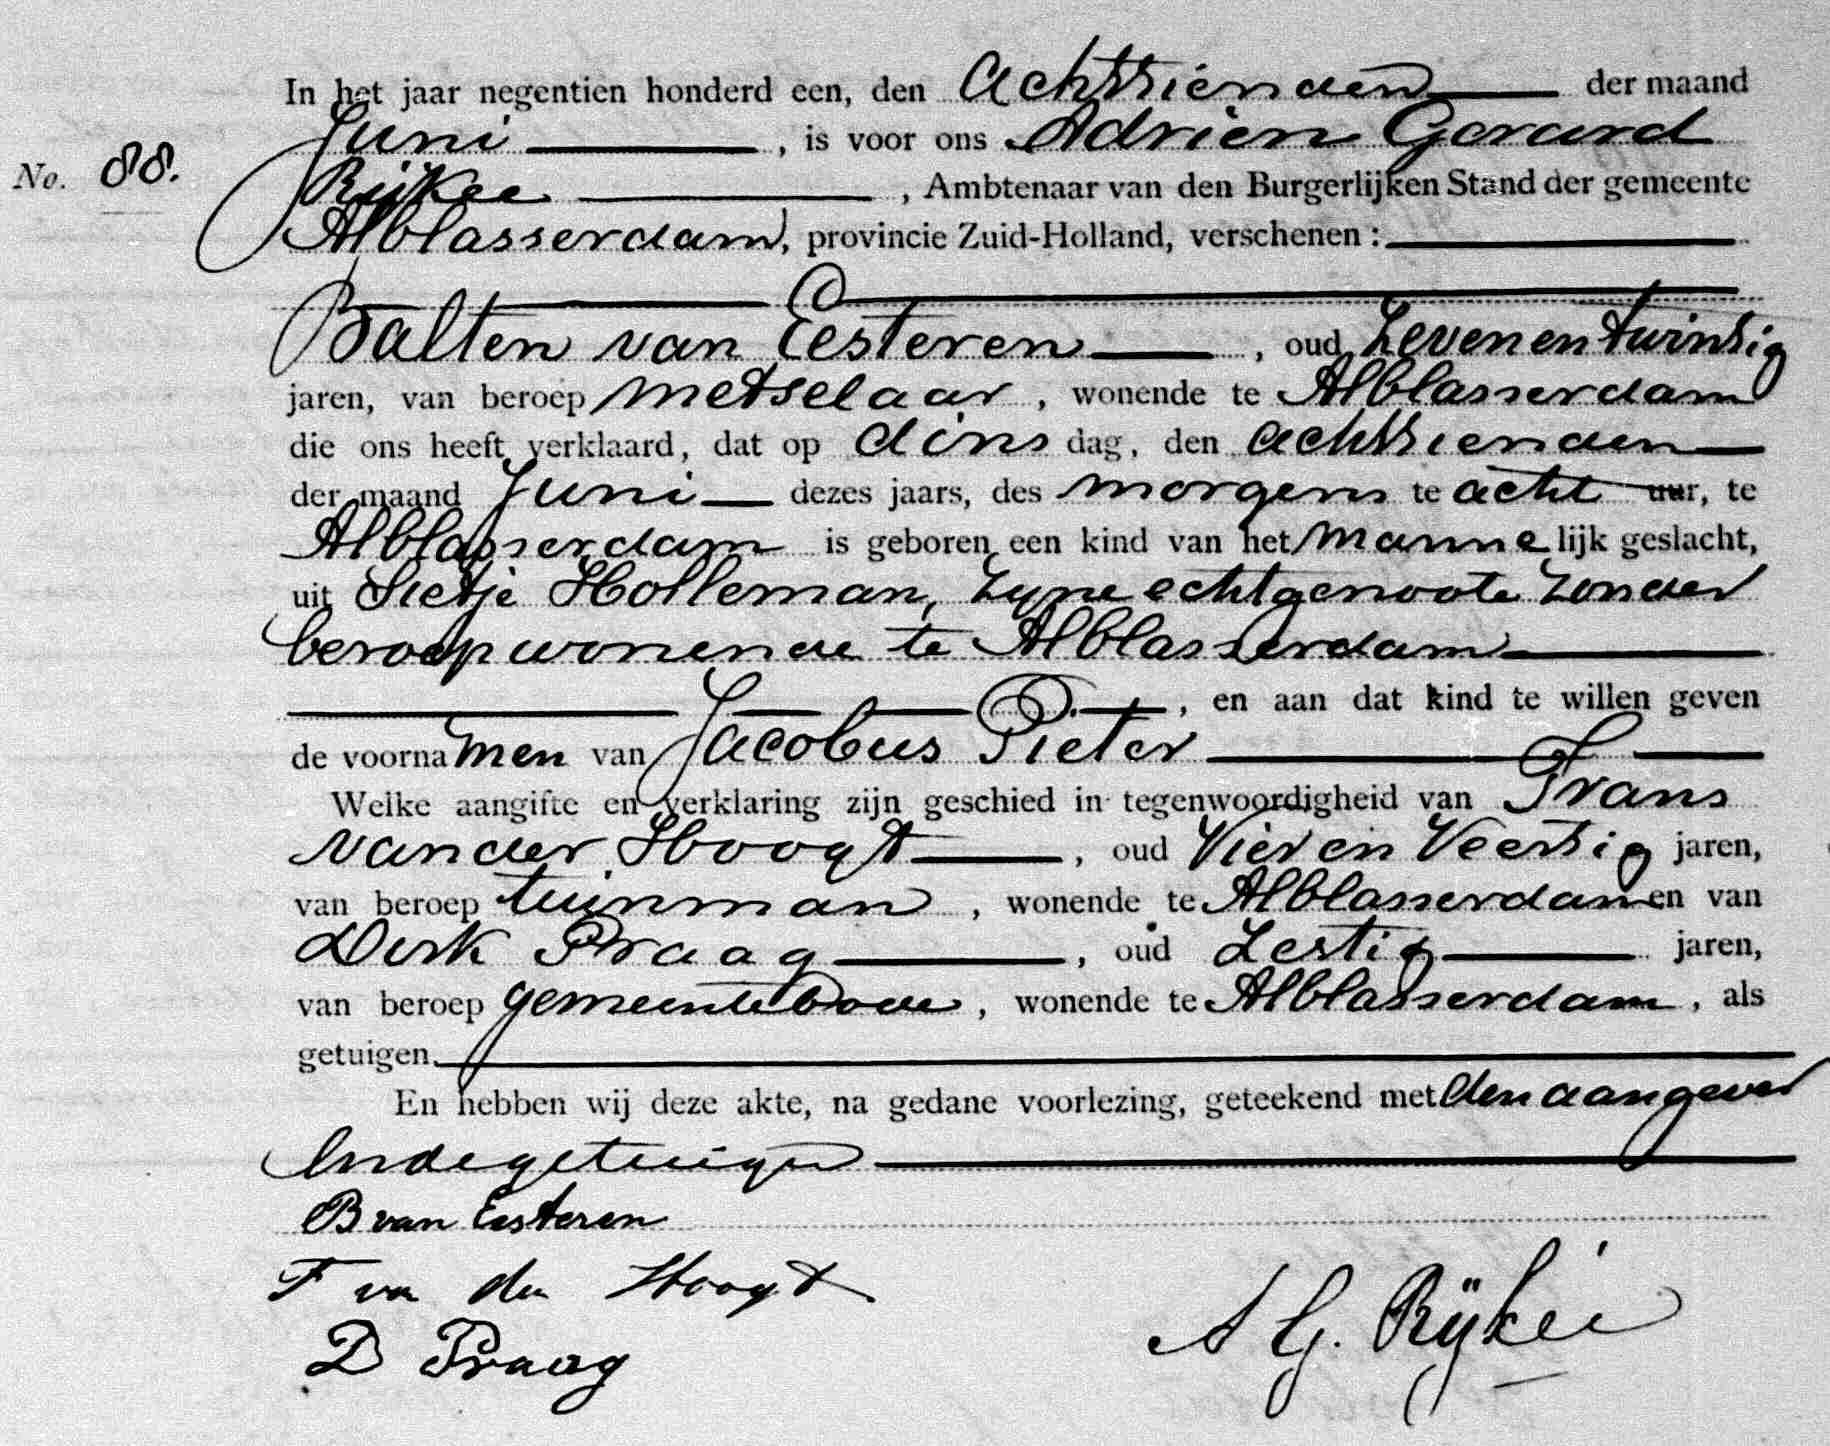 In het jaar negentien honderd een, den achttienden der maand
Juni, is voor ons Adrien Gerard
No. 88.
Rijkée, Ambtenaar van den Burgerlijken Stand der gemeente
Alblasserdam, provincie Zuid-Holland, verschenen:
Balten van Eesteren, oud Zevenentwintig
jaren, van beroep metselaar, wonende te Alblasserdam
die ons heeft verklaard, dat op dinsdag, den achttienden
der maand Juni dezes jaars, des morgens te acht uur, te
Alblasserdam is geboren een kind van het mannelijk geslacht,
uit Sietje Holleman, zyne echtgenoote zonder
beroep wonende te Alblasserdam
, en aan dat kind te willen geven
de voornamen van Jacobus Pieter
Welke aangifte en verklaring zijn geschied in tegenwoordigheid van Frans
van der Hoogt, oud Vier en Veertig jaren,
van beroep tuinman, wonende te Alblasserdam en van
Dirk Praag, oud Zestig jaren,
van beroep gemeentebode, wonende te Alblasserdam, als
getuigen.
En hebben wij deze akte, na gedane voorlezing, geteekend met den aangever
en de getuigen
B van Eesteren
F van der Hoogt
A G. Rÿkée
D Praag